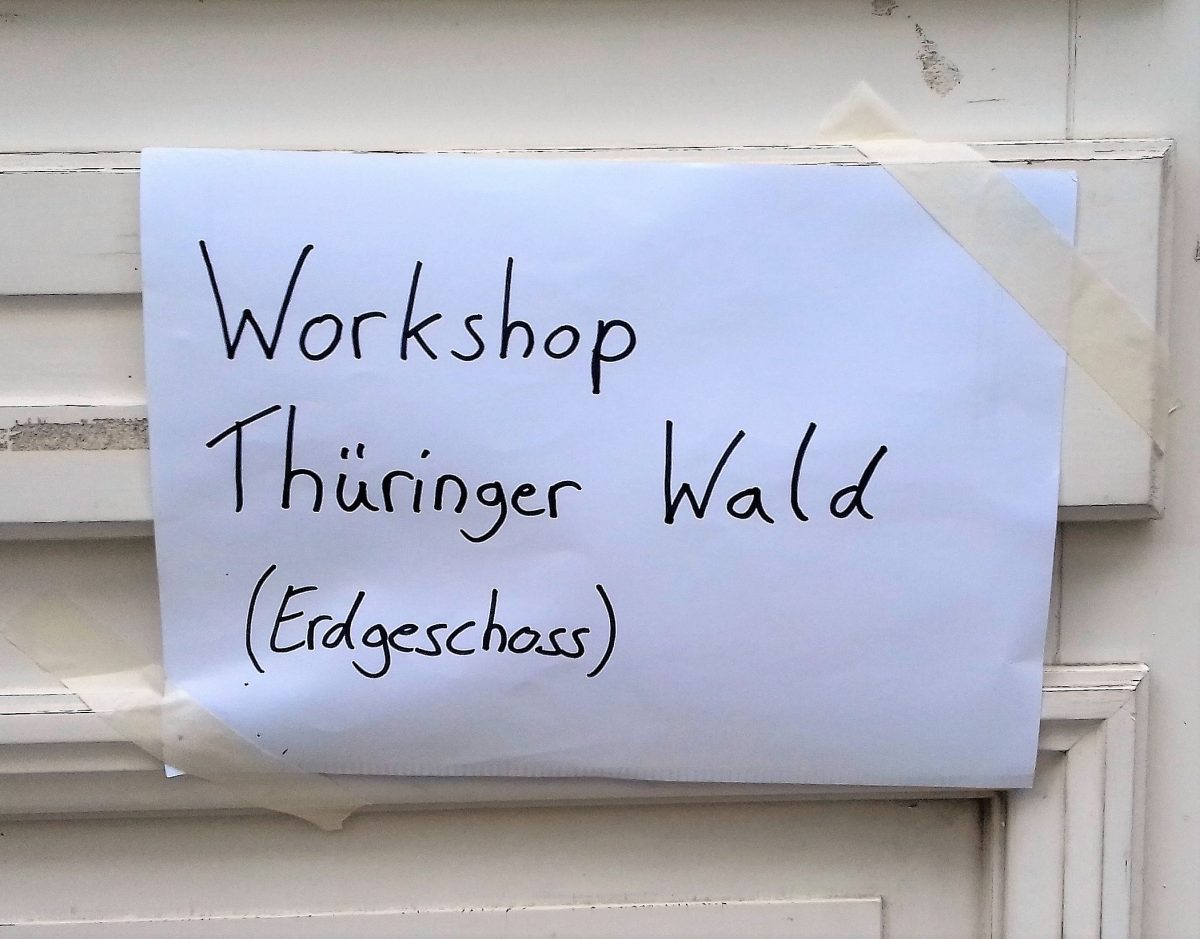 Workshop
Thüringer Wald
(Erdgeschoss)